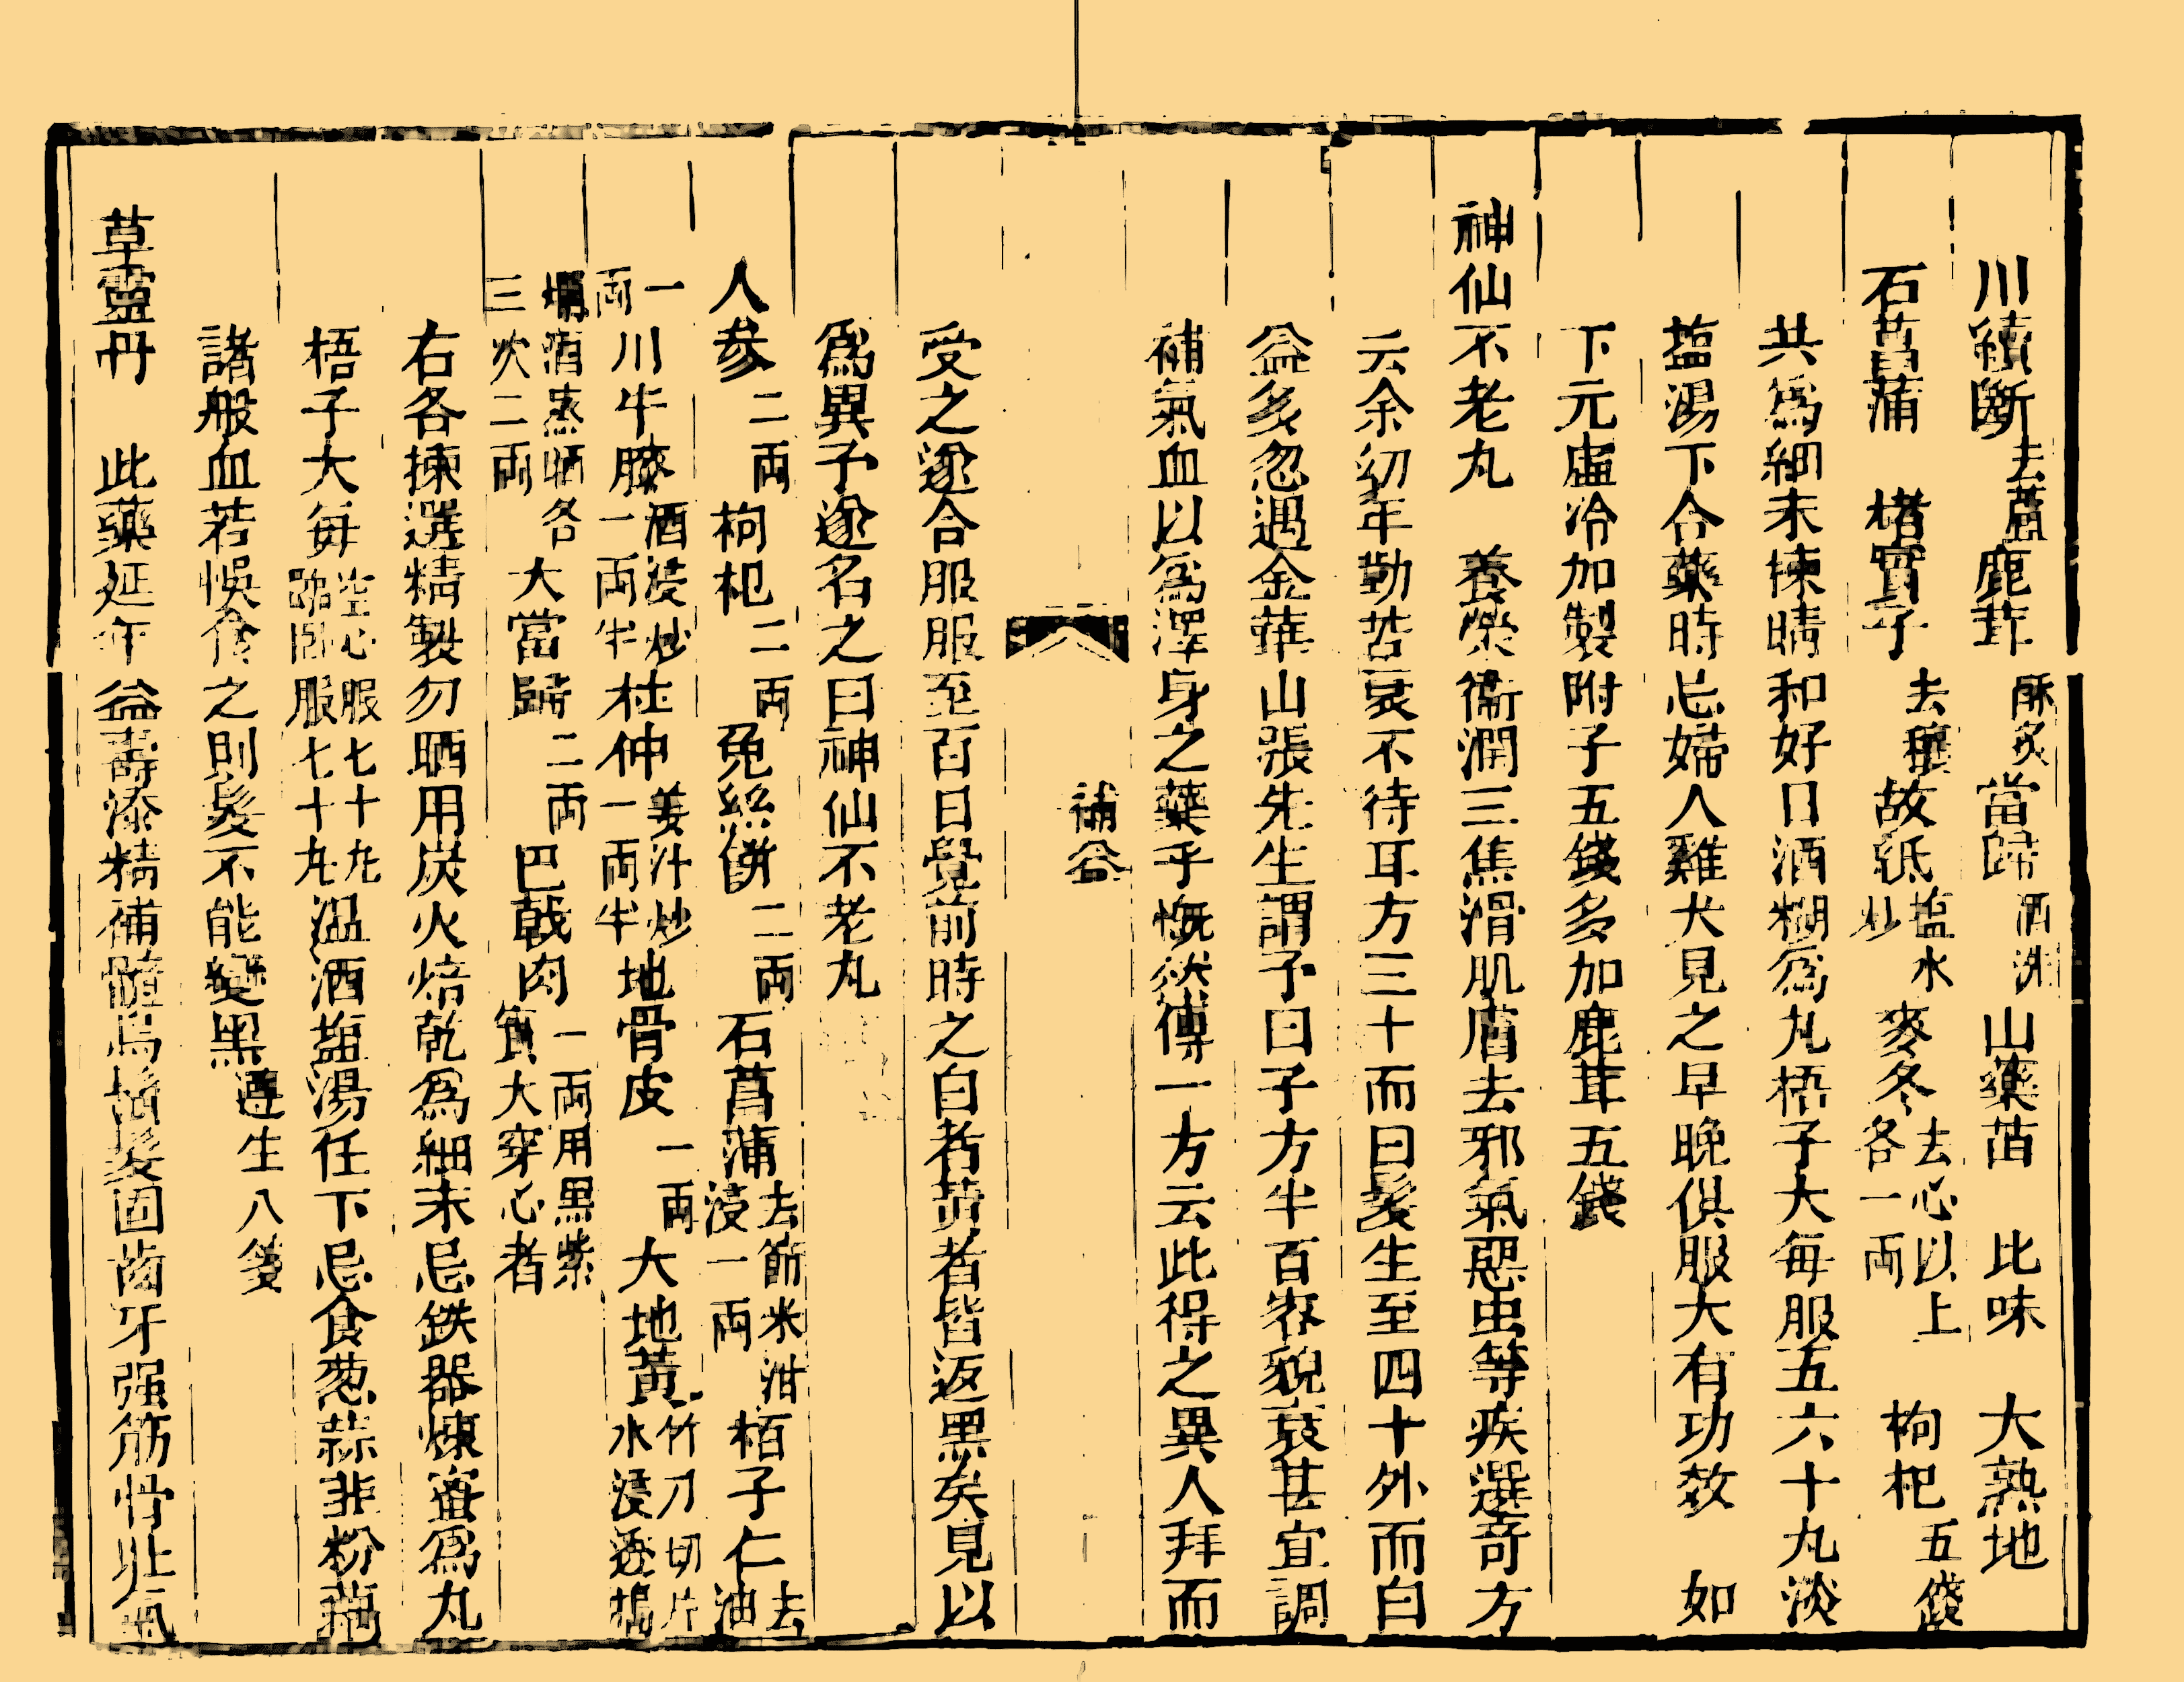 川續斷去蘆 鹿茸酥炙 當歸酒洗 山藥 茴 比味 大熟地
石菖蒲 楮實子去穰 故紙塩水炒 麥冬去心以上各一兩 枸杞五錢
共為細末揀晴和好日酒糊為丸梧子大每服五六十丸淡
塩湯下合藥時忌婦人雞犬見之早晚俱服大有功效 如
下元虛冷加製附子五錢多加鹿茸五錢
神仙不老丸 養榮衞潤三焦滑肌膚去邪氣惡虫等疾選奇方
云余幼年勤苦衰不待耳方三十而曰髮生至四十外而白
益多忽遇金華山張先生謂予曰子方半百容貌衰甚宜調
補氣血以為澤身之藥乎慨然傳一方云此得之異人拜而
補益
受之遂合服服至百日覺前時之白者黄者皆返黒矣見以
為異予遂名之曰神仙不老丸
人參二兩 枸杞二兩 兔絲餅二兩 石菖蒲去節米泔浸一兩 栢子仁去油
一兩 川牛膝酒浸炒一兩半 杜仲姜汁炒一兩半 地骨皮一兩 大地黃竹刀切片水浸透搗
爛酒蒸晒各三次二兩 大當歸二兩 巴戟肉一兩用黒紫實大穿心者
右各揀選精製勿晒用炭火焙乾為細末忌鉄器煉蜜為丸
梧子大每空心服七十丸臨卧服七十丸温酒塩湯任下忌食葱蒜韭粉蔔
諸般血若悞食之則髮不能變黒遵生八箋
草靈丹 此藥延年益壽添精補髓烏鬚髮固齒牙强筋骨壯氣